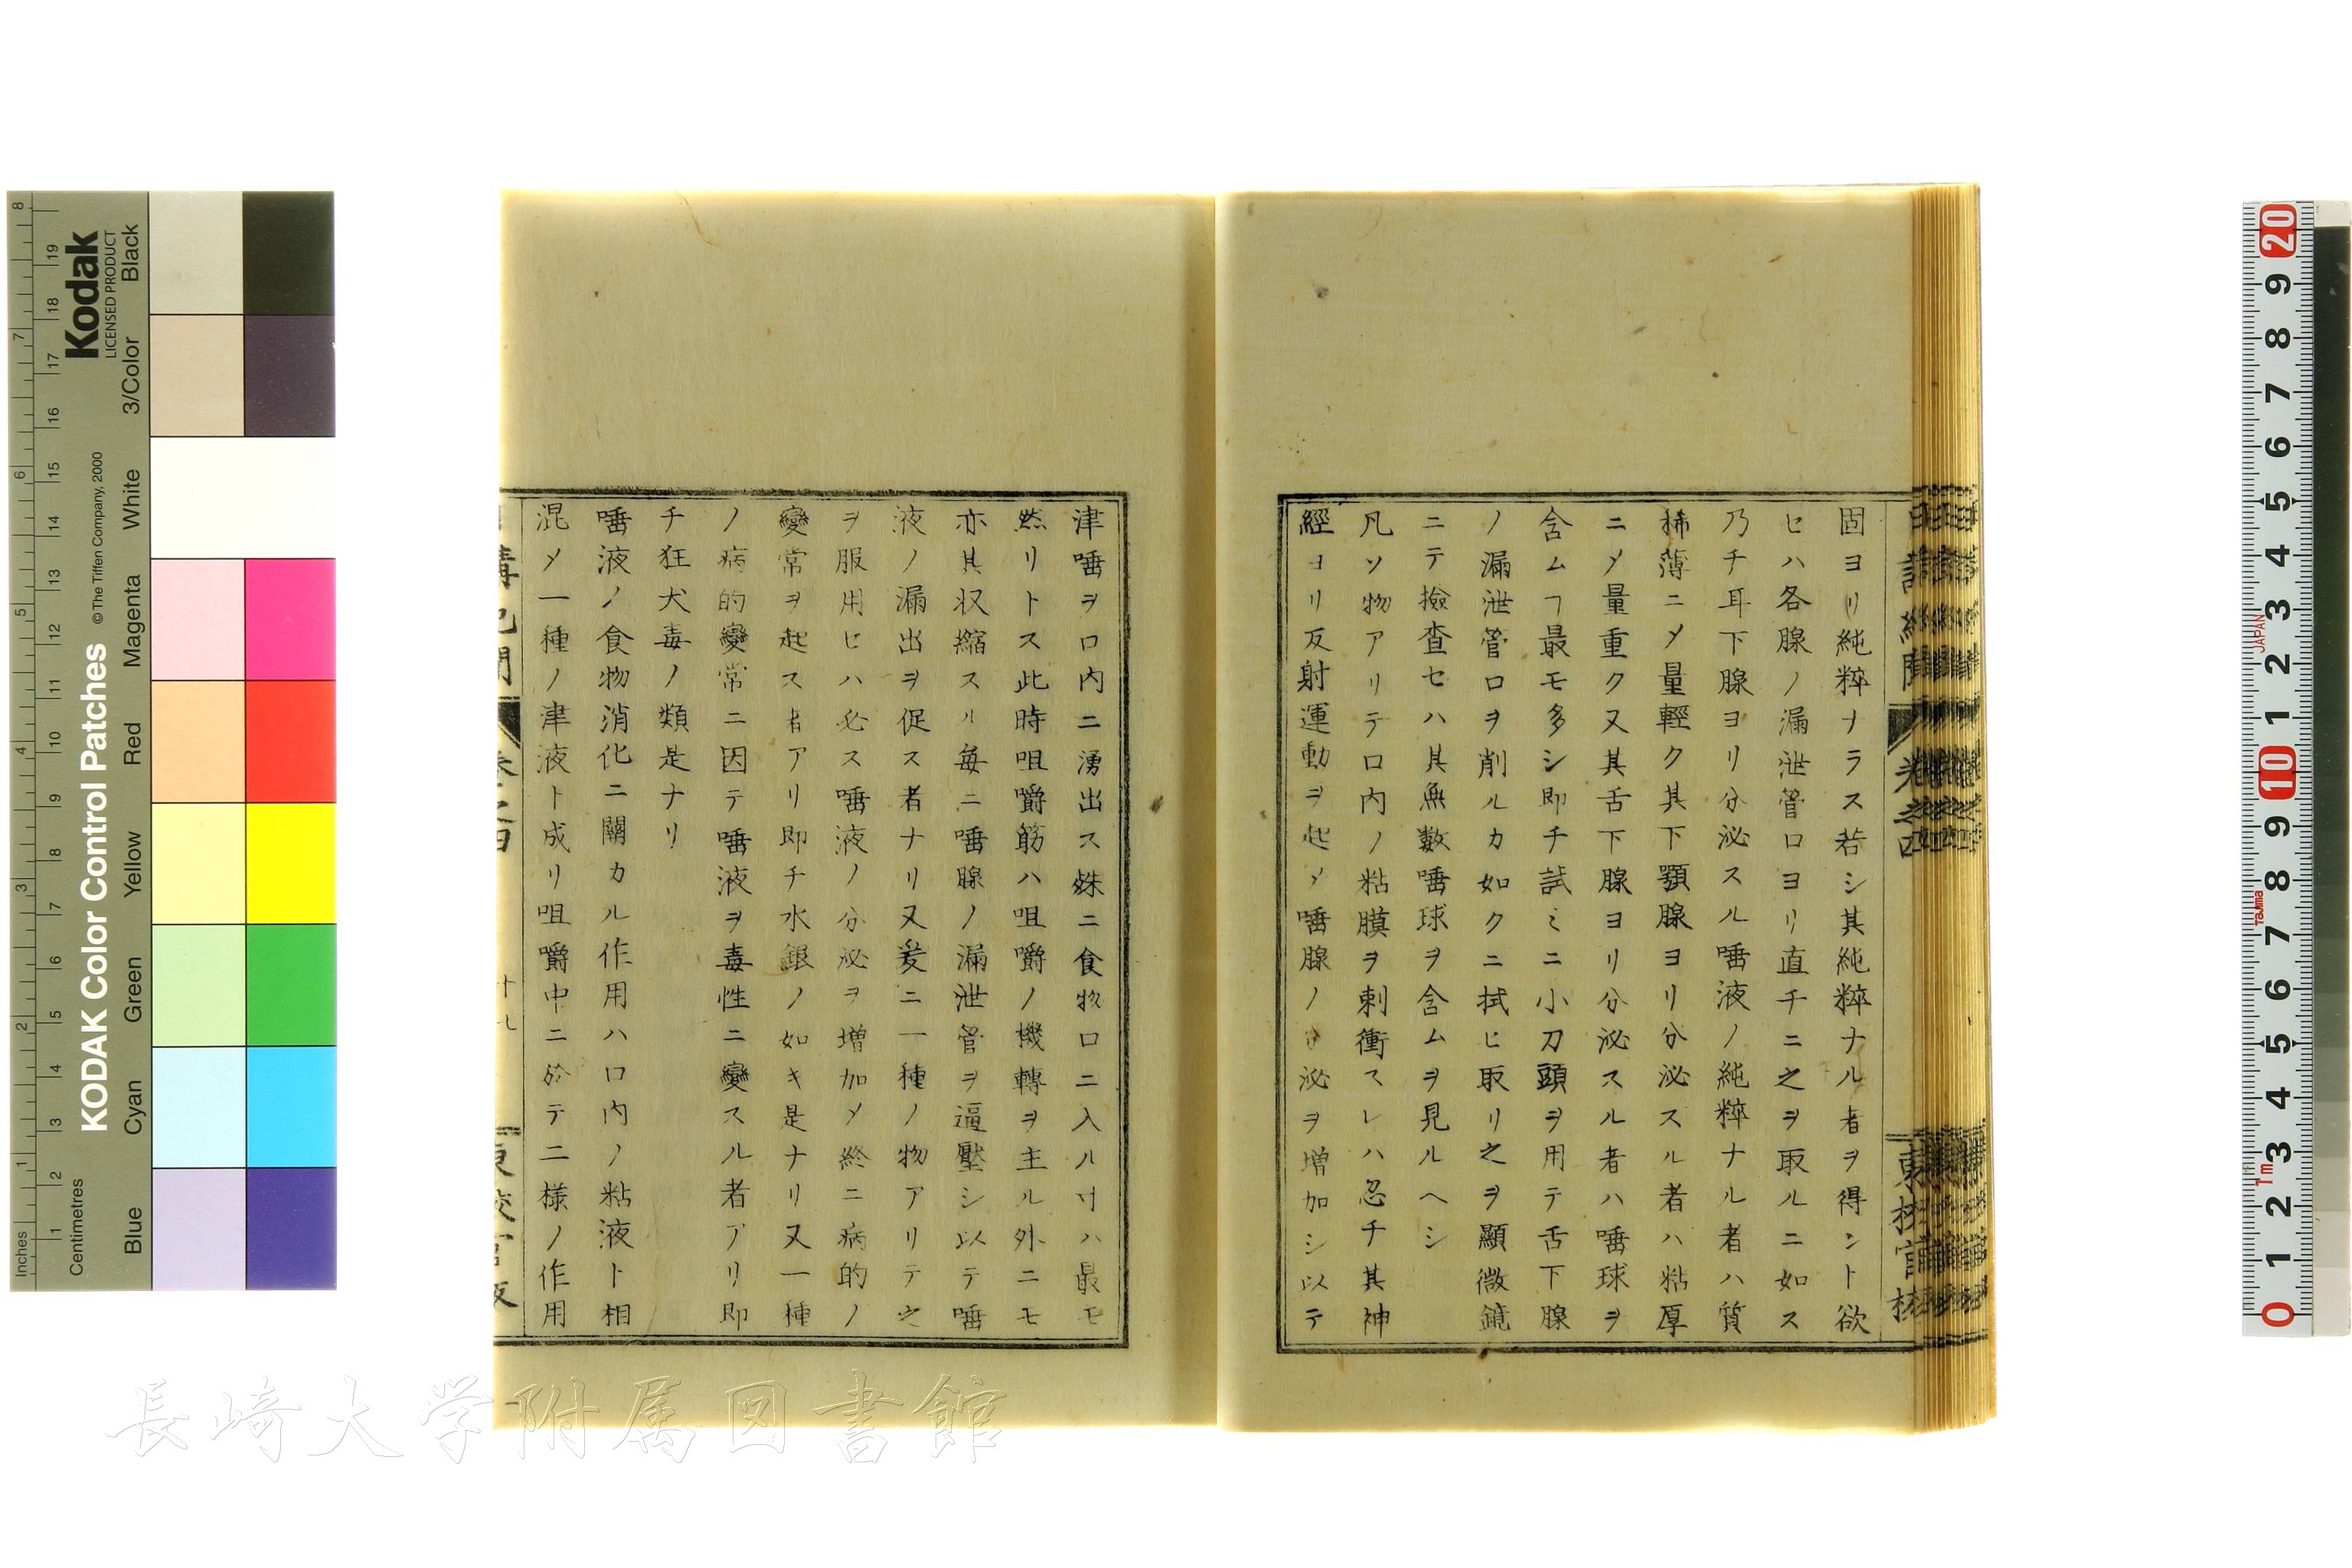 固ヨリ純粹ナラス若シ其純粹ナル者ヲ得ント欲
セハ各腺ノ漏泄管口ヨリ直チニ之ヲ取ルニ如ス
乃チ耳下腺ヨリ分泌スル唾液ノ純粹ナル者ハ質
稀薄ニメ量輕ク其下顎腺ヨリ分泌スル者ハ粘厚
ニメ量重ク又其舌下腺ヨリ分泌スル者ハ唾球ヲ
含ムヿ最モ多シ即チ試ミニ小刀頭ヲ用テ舌下腺
ノ漏泄管口ヲ削ルカ如クニ拭ヒ取リ之ヲ顯微鏡
ニテ撿査セハ其無數唾球ヲ含ムヲ見ルヘシ
凡ソ物アリテ口内ノ粘膜ヲ刺衝スレハ忽チ其神
經ヨリ反射運動ヲ起メ唾腺ノ分泌ヲ増加シ以テ
津唾ヲ口内ニ湧出ス殊ニ食物口ニ入ル寸ハ最モ
然リトス此時咀嚼筋ハ咀嚼ノ機轉ヲ主ル外ニモ
亦其収縮スル毎ニ唾腺ノ漏泄管ヲ逼壓シ以テ唾
液ノ漏出ヲ促ス者ナリ又爰ニ一種ノ物アリテ之
ヲ服用セハ必ス唾液ノ分泌ヲ増加メ終ニ病的ノ
變常ヲ起ス者アリ即チ水銀ノ如キ是ナリ又一種
ノ病的變常ニ因テ唾液ヲ毒性ニ變スル者アリ即
チ狂犬毒ノ類是ナリ
唾液ノ食物消化ニ關カル作用ハ口内ノ粘液ト相
混メ一種ノ津液ト成リ咀嚼中ニ於テ二様ノ作用
長崎大学附属図書館
KODAK Color Control Patches
© The Tiffen Company, 2000
Kodak
LICENSED PRODUCT
Inches
Centimetres
Blue
Cyan
Green
Yellow
Red
Magenta
White
3/Color
Black
JAPAN
Tajima
1m